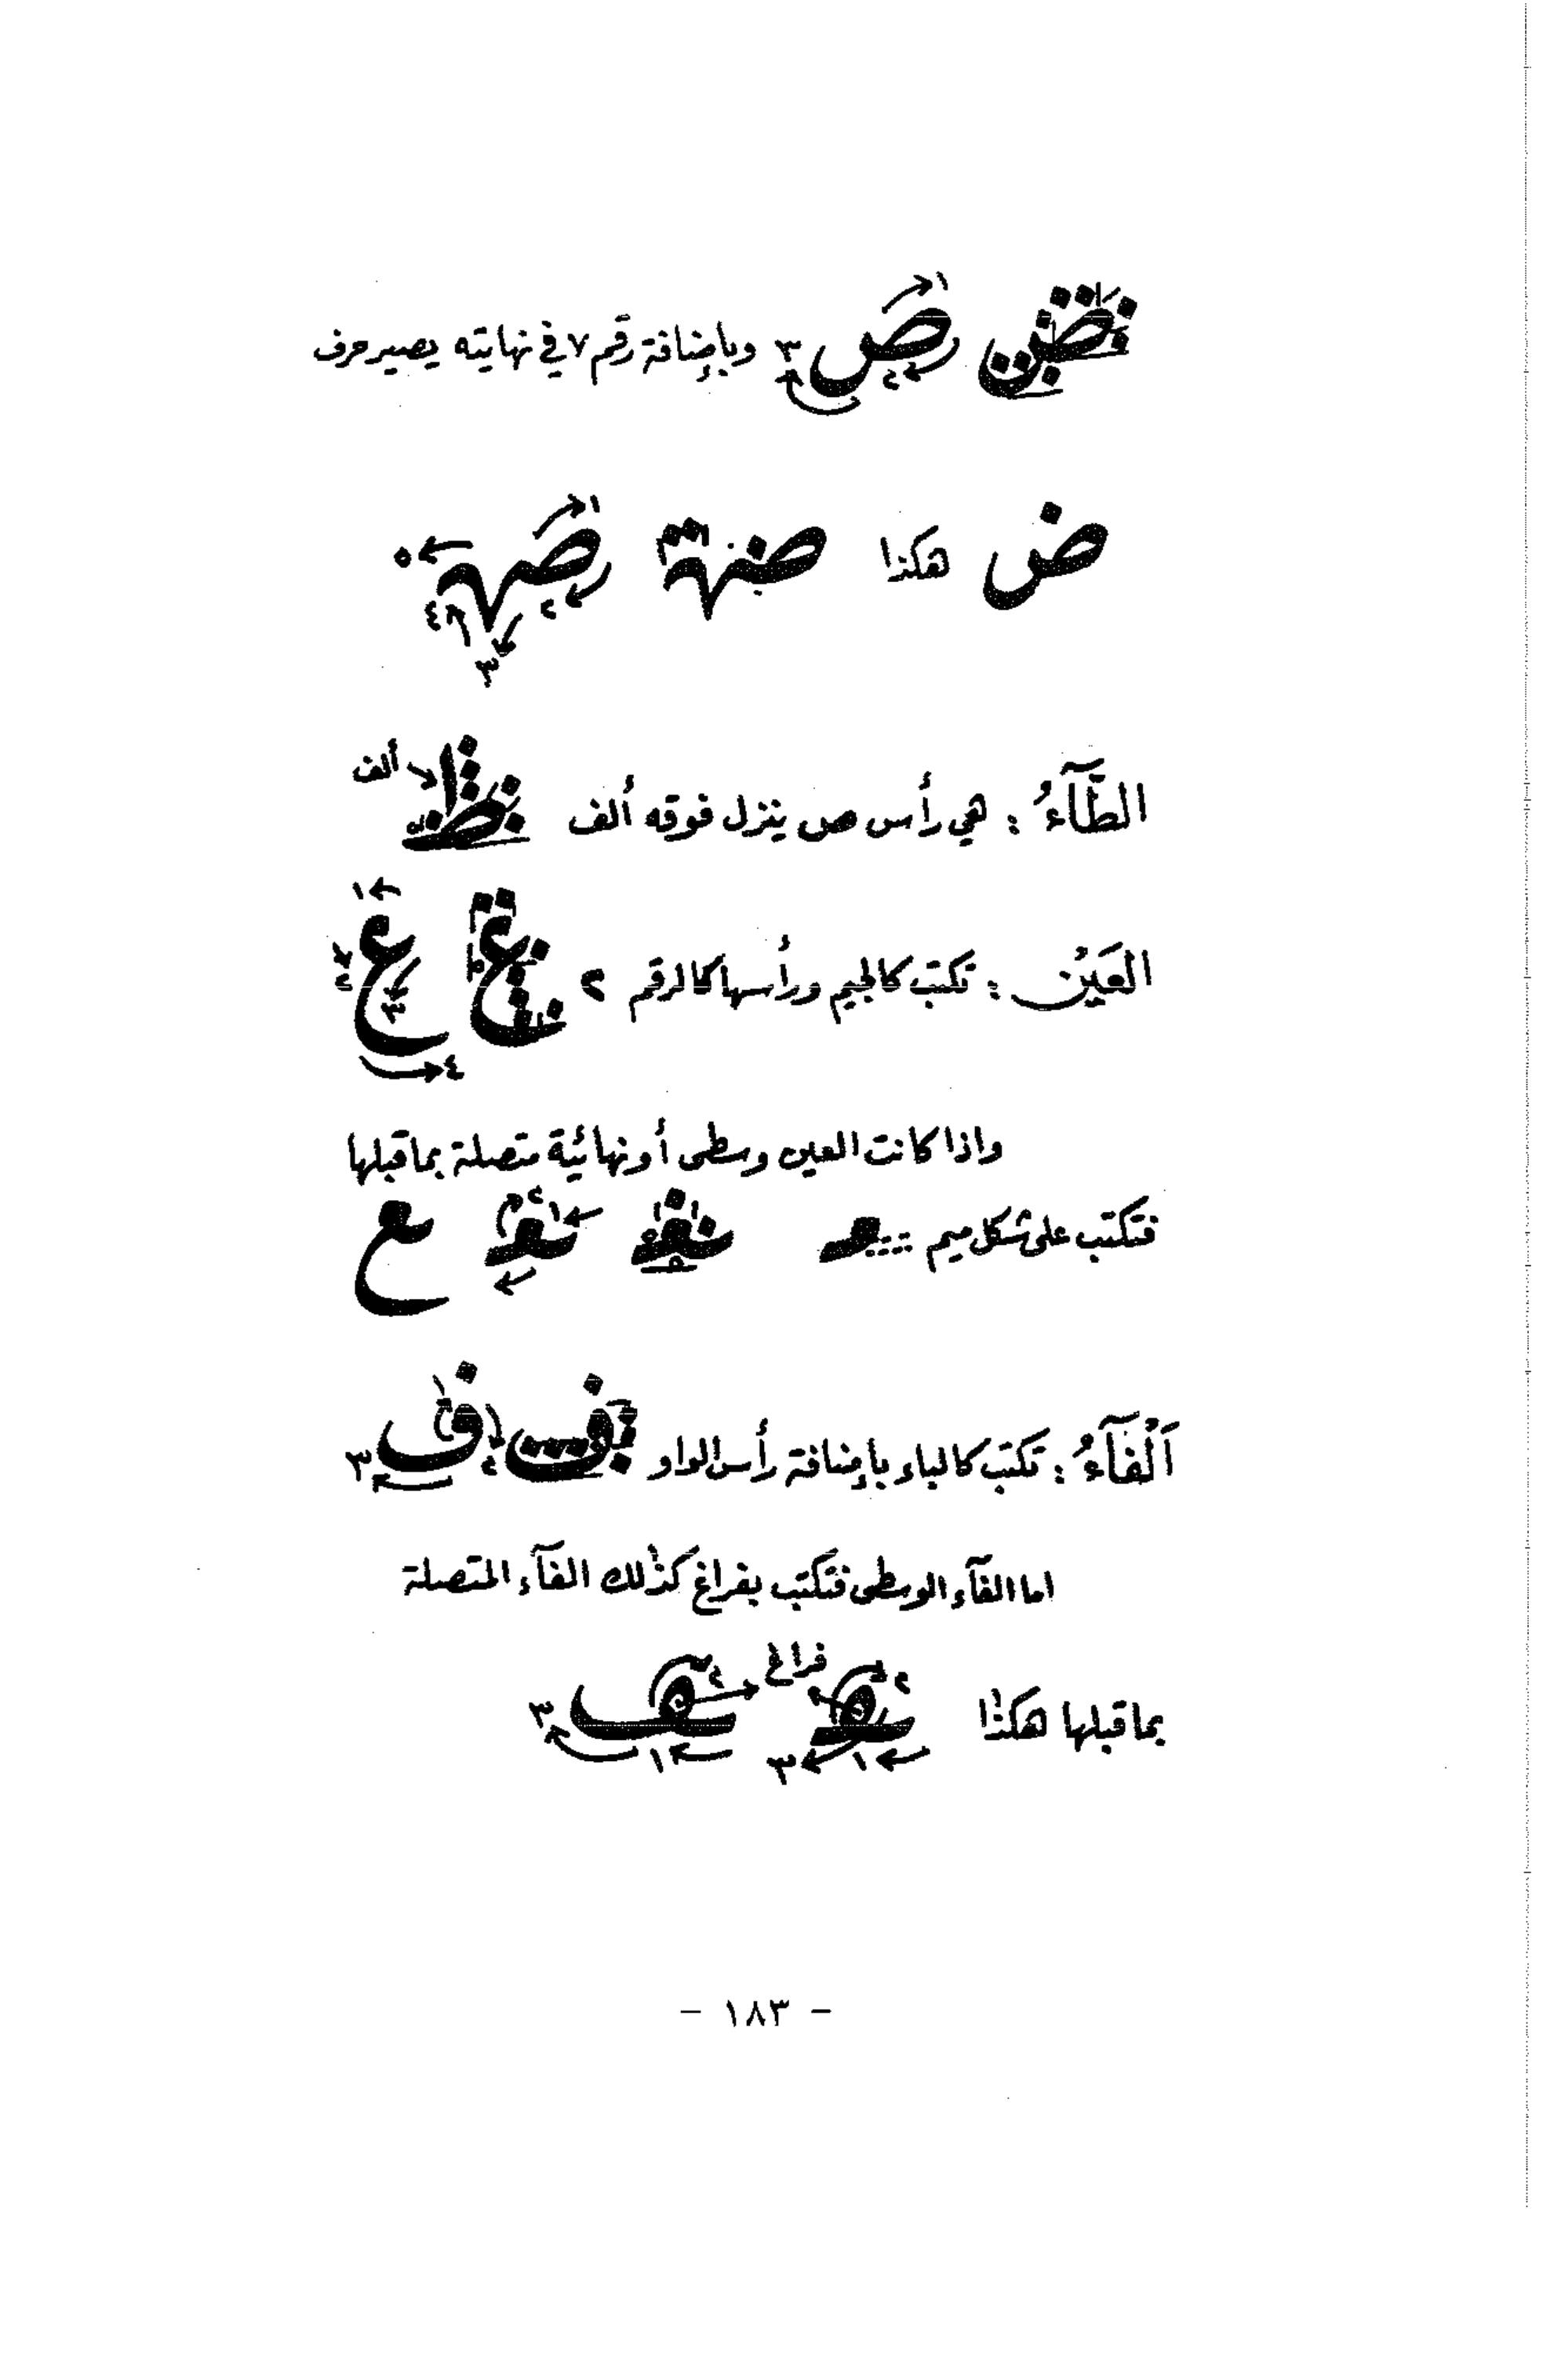 ص ص ١ ٢ ٣ وبإضافة رقم ٧ في نهايته يصير حرف
ض هكذا صهـ صهـ ١ ٢ ٣ ٤ ٥
الطَّآءُ : هي رأس ص ينزل فوقه ألف ط ألف
العَيْن : تكتب كالجيم ورأسها كالرقم ٢ ع ع ١ ٢ ٣ ٤
واذا كانت العين وسطى أو نهائية متصلة بما قبلها
فتكتب على شكل ميم ـعـ ـعـ ١ ٢ ـع
اَلْفَآءُ : تكتب كالباء بإضافة رأس الواو ف ف ١ ٢ ٣
اما الفآء الوسطى فتكتب بفراغ كذٰلك الفآء المتصلة
بما قبلها هكذٰا ـفـ فراغ ـف ١ ٢ ٣ ١ ٢ ٣
- ١٨٣ -